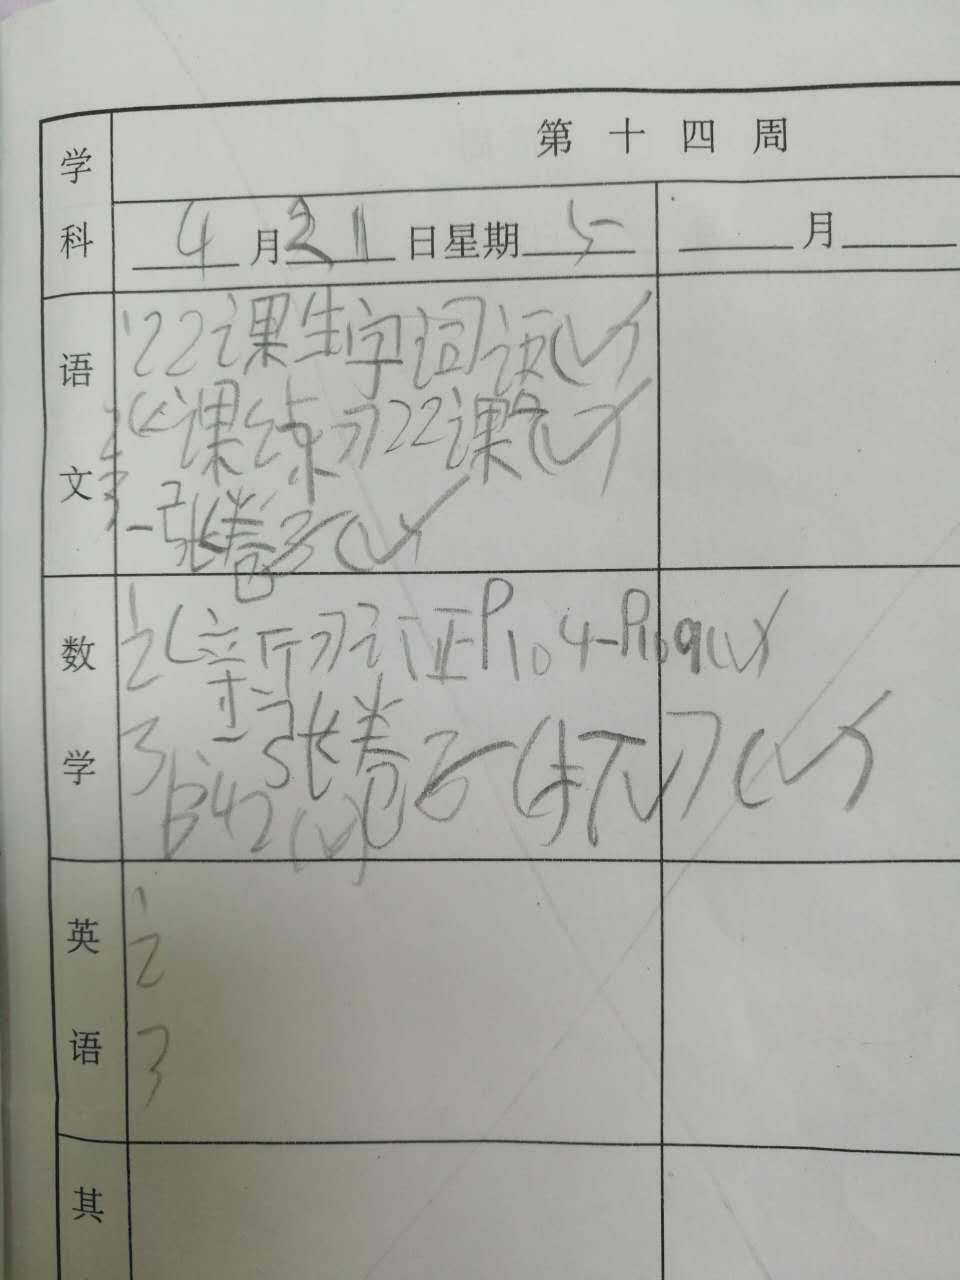 学科
第十四周
4月21日星期5
月
语文
1 22课生字词语(✓)
2《课课练》22课(✓)
3 一张卷子(✓)
数学
1
2 P104-P109(✓)
3 一张卷子(✓)
P42(✓)
英语
1
2
3
其